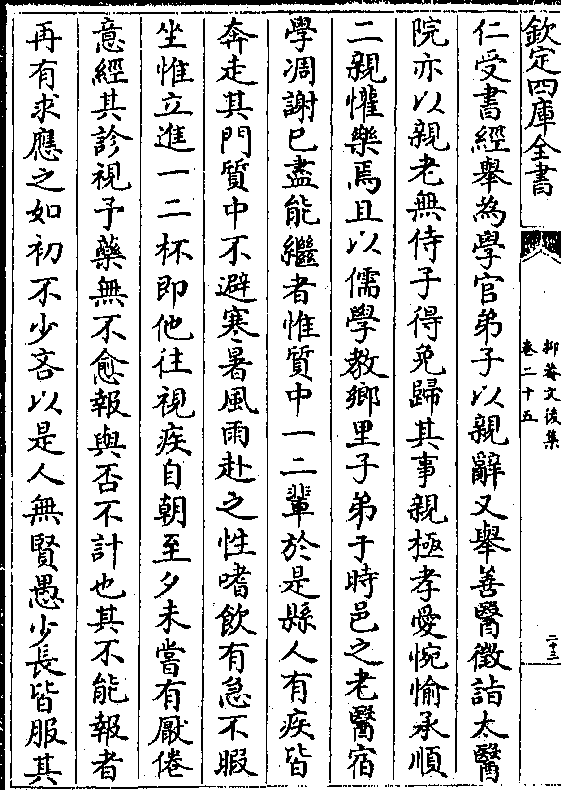 欽定四庫全書
抑菴文後集
卷二十五
二十三
仁受書經舉為學官弟子以親辭又舉善醫徵詣太醫
院亦以親老無侍子得免歸其事親極孝愛惋愉承順
二親懽樂焉且以儒學教鄉里子弟于時邑之老醫宿
學凋謝已盡能繼者惟質中一二輩於是縣人有疾皆
奔走其門質中不避寒暑風雨赴之性嗜飲有急不暇
坐惟立進一二杯即他往視疾自朝至夕未嘗有厭倦
意經其診視予藥無不愈報與否不計也其不能報者
再有求應之如初不少吝以是人無賢愚少長皆服其